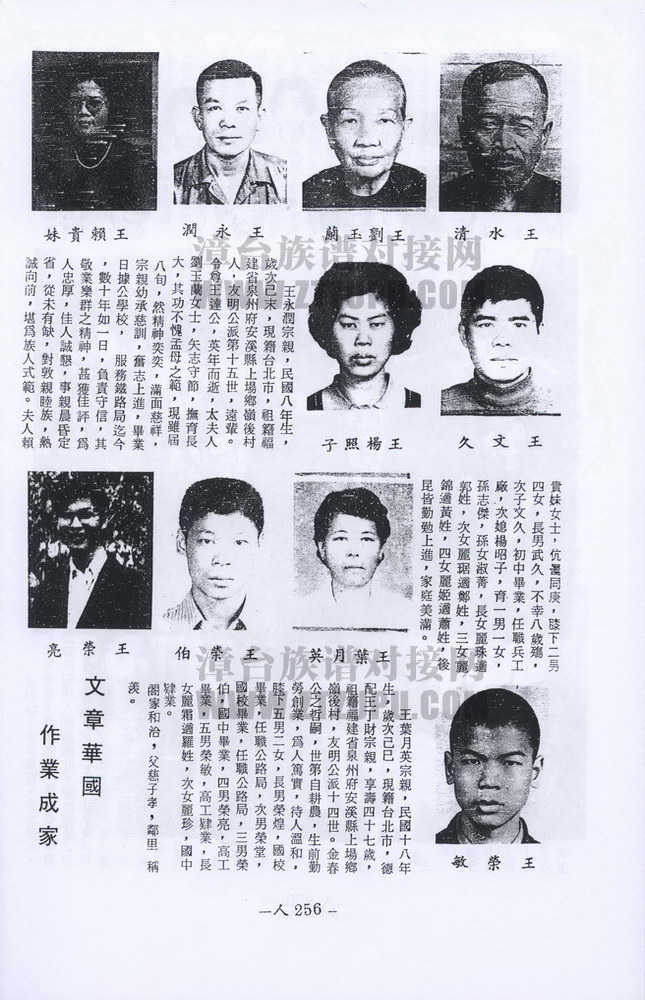 王水清
王劉玉蘭
王永潤
王賴貴妹
王文久
王楊照子
王永潤宗親，民國八年生，
歲次己未，現籍台北市，祖籍福
建省泉州府安溪縣上場鄉嶺後村
人，友明公派第十五世，遠輩。
令尊王達公，英年而逝，太夫人
劉玉蘭女士，矢志守節，撫育長
大，其功不愧孟母之範，現雖屆
八旬，然精神奕奕，滿面慈祥，
宗親幼承慈訓，奮志上進，畢業
日據公學校，服務鐵路局迄今
，數十年如一日，負責守信，其
敬業樂群之精神，甚獲佳評，爲
人忠厚，佳人誠懇，事親晨昏定
省，從未有缺，對敦親睦族，熱
誠向前，堪爲族人式範。夫人賴
貴妹女士，伉儷同庚，膝下二男
四女，長男武久，不幸八歲殤，
次子文久，初中畢業，任職兵工
廠，次媳楊昭子，育一男一女，
孫志傑，孫女淑菁，長女麗珠適
郭姓，次女麗琚適鄭姓，三女麗
錦適黃姓，四女麗姬適蕭姓，後
昆皆勤勉上進，家庭美滿。
王葉月英
王榮伯
王榮亮
王榮敏
王葉月英宗親，民國十八年
生，歲次己巳，現籍台北市，德
配王丁財宗親，享壽四十七歲，
祖籍福建省泉州府安溪縣上場鄉
嶺後村，友明公派十四世。金春
公之哲嗣，世第自耕農，生前勤
勞創業，爲人篤實，待人溫和，
膝下五男二女，長男榮煌，國校
畢業，任職公路局，次男榮堂，
國校畢業，任職公路局，三男榮
伯，國中畢業，四男榮亮，高工
畢業，五男榮敏，高工肄業，長
女麗霜適羅姓，次女麗珍，國中
肄業。
閤家和治，父慈子孝，鄰里稱
羨。
文章華國
作業成家
—人256—
漳台族谱对接网
漳台族谱对接网